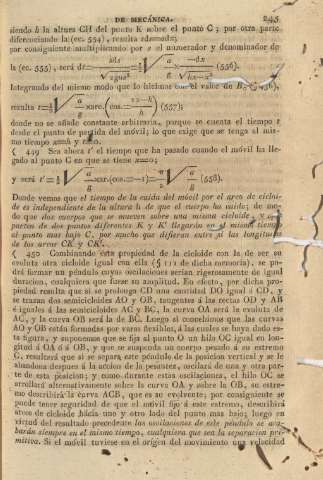 DE MECÁNICA. 245
siendo h la altura CH del punto K sobre el punto C; por otra parte
diferenciando la (ec. 554), resulta
por consiguiente multiplicando por s el numerador y denominador de
la (ec. 555), será dt= (556).
Integrando del mismo modo que lo hicimos con el valor de
resulta t=½√a/g ×arc.(cos.= 2x−h / h) (557);
donde no se añade constante arbitraria, porque se cuenta el tiempo t
desde el punto de partida del móvil; lo que exige que se tenga al mis-
mo tiempo
( 449 Sea ahora t' el tiempo que ha pasado cuando el móvil ha lle-
gado al punto C en que se tiene x=0;
y será t'=½√a/g ×arc.(cos.=−1)= √a/g (558).
Donde vemos que el tiempo de la caida del móvil por el arco de cicloi-
de es independiente de la altura h de que el cuerpo ha caido; de mo-
do que dos cuerpos que se mueven sobre una misma cicloide, y
partan de dos puntos diferentes K y K' llegarán en el mismo tiempo
al punto mas bajo C, por mucho que difieran entre sí las longitudes
de los arcos CK y CK'.
( 450 Combinando esta propiedad de la cicloide con la de ser su
evoluta otra cicloide igual con ella (§ de dicha memoria), se po-
drá formar un péndulo cuyas oscilaciones serían rigorosamente de igual
duracion, cualquiera que fuese su amplitud. En efecto, por dicha pro-
piedad resulta que si se prolonga CD una cantidad DO igual á CD, y
se trazan dos semicicloides AO y OB, tangentes á las rectas OD y AB
é iguales á las semicicloides AC y BC, la curva OA será la evoluta de
AC, y la curva OB será la de BC. Luego si concebimos que las curvas
AO y OB están formadas por varas flexibles, á las cuales se haya dado es-
ta figura, y suponemos que se fija al punto O un hilo OC igual en lon-
gitud á OA ó á OB, y que se suspenda un cuerpo pesado á su estremo
C, resultará que si se separa este péndulo de la posicion vertical y se le
abandona despues á la accion de la pesantez, oscilará de una y otra par-
te de esta posicion; y como durante estas oscilaciones, el hilo OC se
arrollará alternativamente sobre la curva OA y sobre la OB, su estre-
mo describirá la curva ACB, que es su evolvente; por consiguiente se
puede tener seguridad de que el móvil fijo á este estremo, describirá
arcos de cicloide hácia uno y otro lado del punto mas bajo; luego en
virtud del resultado precedente las oscilaciones de este péndulo se aca-
barán siempre en el mismo tiempo, cualquiera que sea la separacion pri-
mitiva. Si el móvil tuviese en el origen del movimiento una velocidad